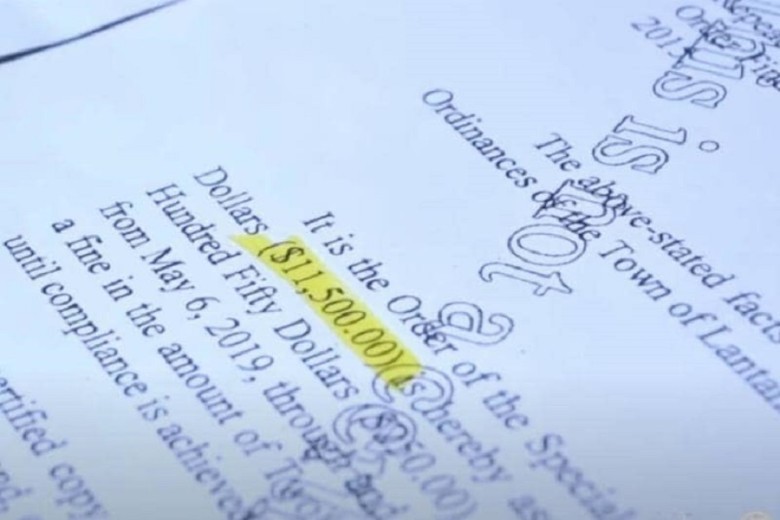 2019
The above-stated facts
Ordinances of the Town of Lantan
It is the Order of the Special
Dollars ($11,500.00) is hereby as
Hundred Fifty Dollars ($250.00)
from May 6, 2019, through and
a fine in the amount of Two
until compliance is achieved
ertified copy
This is not a